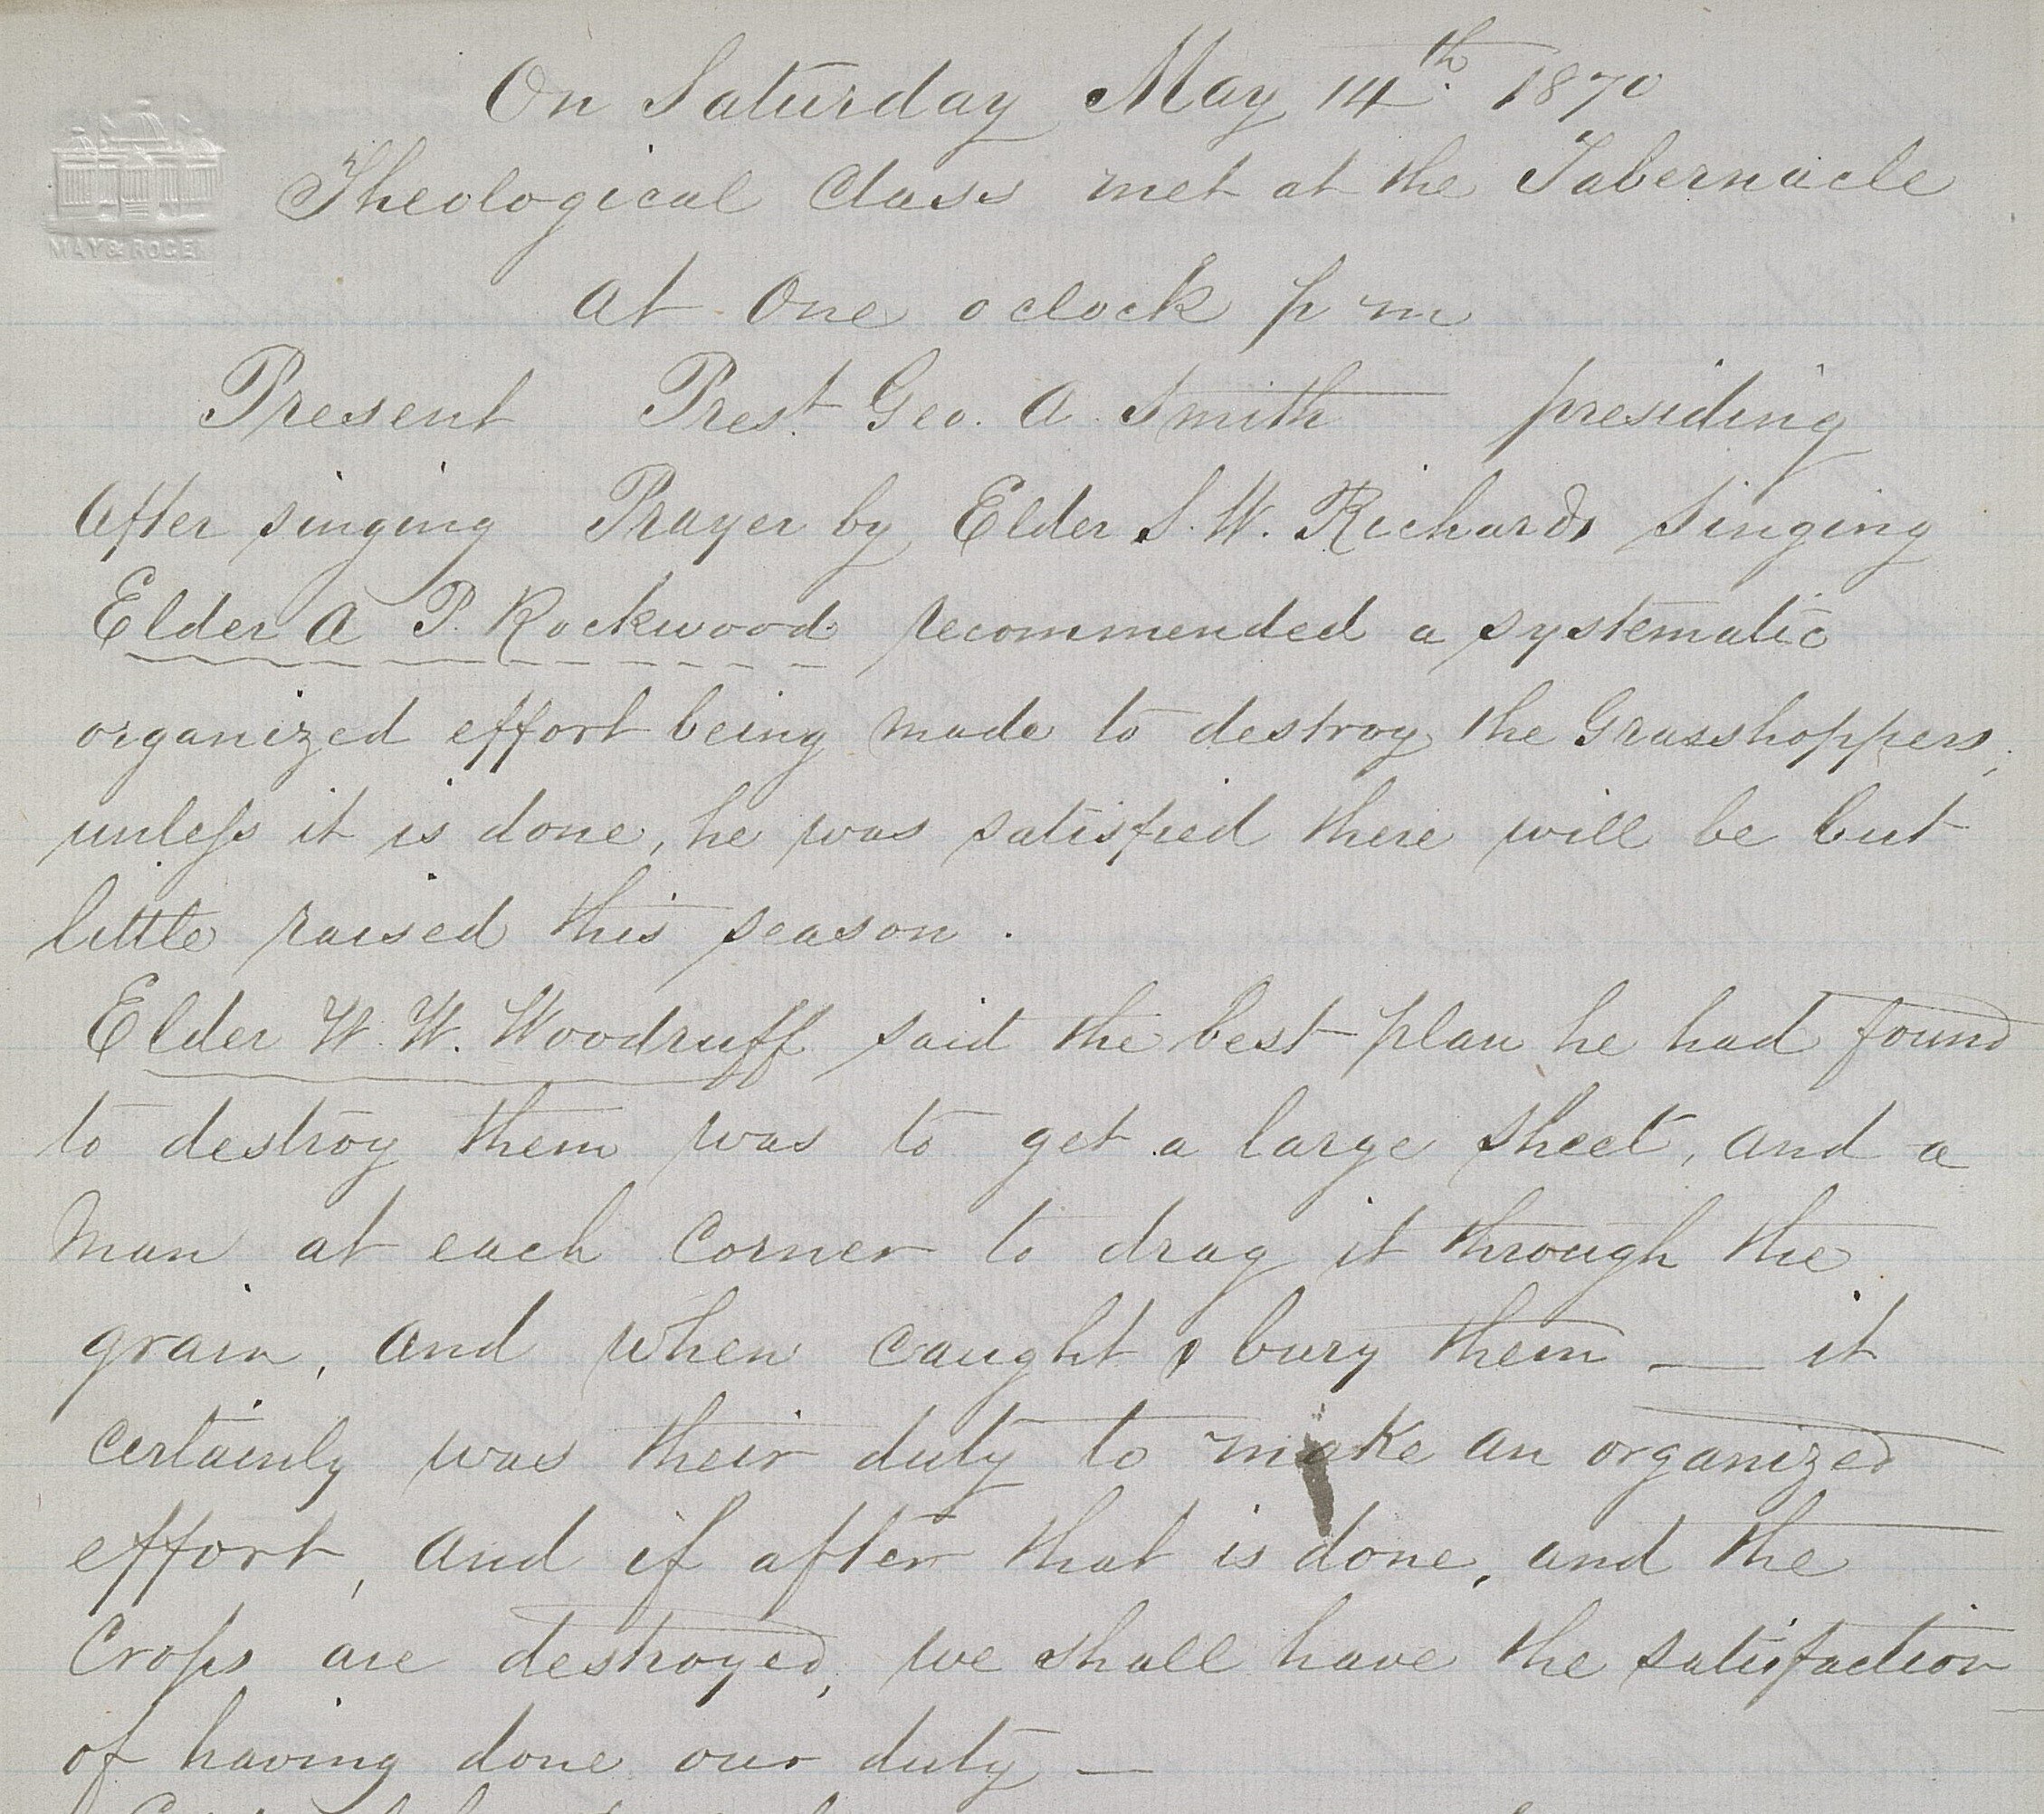 On Saturday May 14th. 1870
MAY & ROGE
Theological Class met at the Tabernacle
at One o clock p m
Present Prest. Geo. A. Smith presiding
After singing Prayer by Elder S. W. Richards Singing
Elder A P. Rockwood recommended a systematic
organized effort being made to destroy the Grasshoppers,
unless it is done, he was satisfied there will be but
little raised this season.
Elder W. W. Woodruff said the best plan he had found
to destroy them was to get a large sheet, and a
man at each corner to drag it through the
grain, and when caught, bury them — it
certainly was their duty to make an organized
effort, and if after that is done, and the
Crops are destroyed, we shall have the satisfaction
of having done our duty —